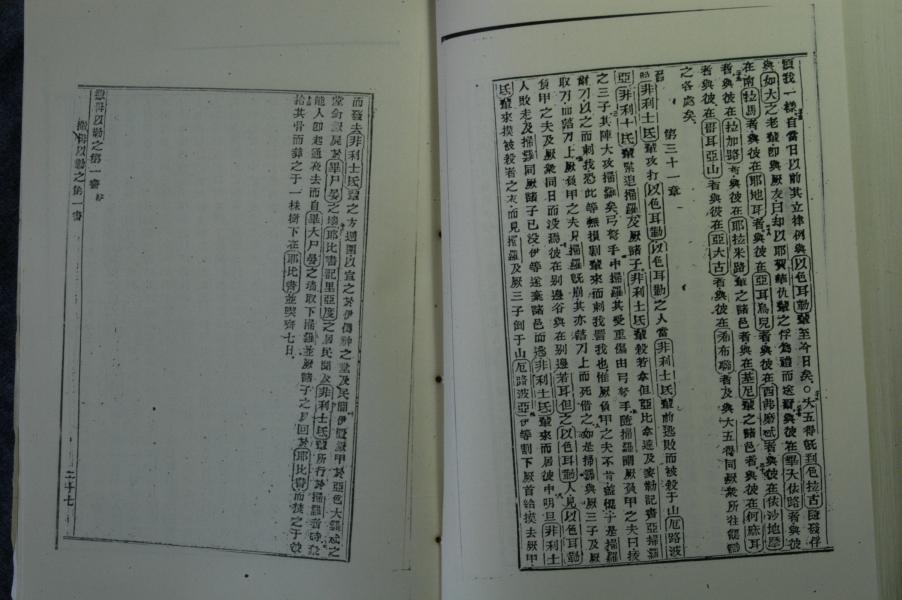 領我一樣自當日以前其立律例與以色耳勒輩至今日矣○大五得旣到色拉古隨發俘
與如大之老輩卽與厥友曰却以耶賀華仇輩之俘為禮而送爾與彼在畢大依路者與彼
在南拉馬者與彼在耶地耳者與彼在亞耳鳥見者與彼在西弗磨忒者與彼在依沙地摩
者與彼在拉加路者與彼在耶拉米路輩之諸邑者與彼在基尼輩之諸邑者與彼在何麻耳
者與彼在哥耳亞山者與彼在亞大古者與彼在希布聯者及與大五得同厥衆所往
之各處矣
第三十一章
非利士氐輩攻打以色耳勒以色耳勒之人當非利士氐輩前逃敗而被殺于山厄路波
亞非利士氐輩緊追掃羅及厥諸子非利士氐輩殺若拿但亞比拿達及麥勒記書亞掃羅
之三子其陣大攻掃羅矣弓弩手中掃羅其受重傷由弓弩手隨掃羅謂厥負甲之夫曰拔
爾刀以之而刺我恐此等無損割輩來而刺我詈我也惟厥負甲之夫不肯蓋懼于是掃羅
取刀而踣刀上厥負甲之夫見掃羅旣崩其亦踣刀上而死偕之如是掃羅與厥三子及厥
負甲之夫及厥衆同日而沒焉彼在別邊谷與在別邊若耳但之以色耳勒人見以色耳勒
人敗走及掃羅同厥諸子已没伊等遂棄諸邑而逃非利士氐輩來而居彼中明旦非利士
氐輩來摸被殺者之衣而見掃羅及厥三子倒于山厄路波亞伊等割下厥首給摸去厥甲
而發去非利士氐輩之方週圍以宣之於伊偶神之堂及民間伊置厥甲於亞色大羅忒之
堂釘厥屍於畢尸晏之墻耶比書記里亞度之居民聞及非利士氐輩所行於掃羅者時衆
能人卽起通夜去而自畢大尸晏之墻取下掃羅並厥諸子之身回於耶比書而焚之于彼
拾其骨而葬之于一株樹下在耶比書並喫齊七日
撒母以勒之第一書 終
撒母以勒之第一書
二十七